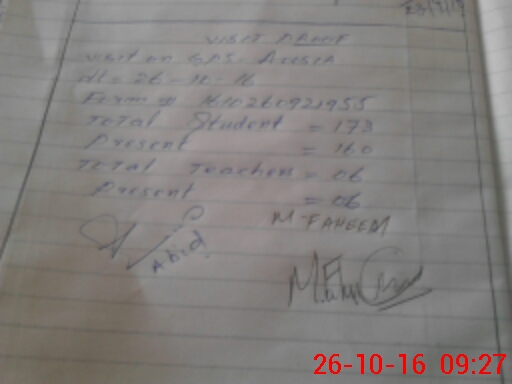 23/9/16
VISIT
visit on GPS.
dt = 26-10-16
Form # 1610260921955
Total Student = 173
Present = 160
Total Teachers = 06
Present = 06
M FAHEEM
Abid
26-10-16 09:27